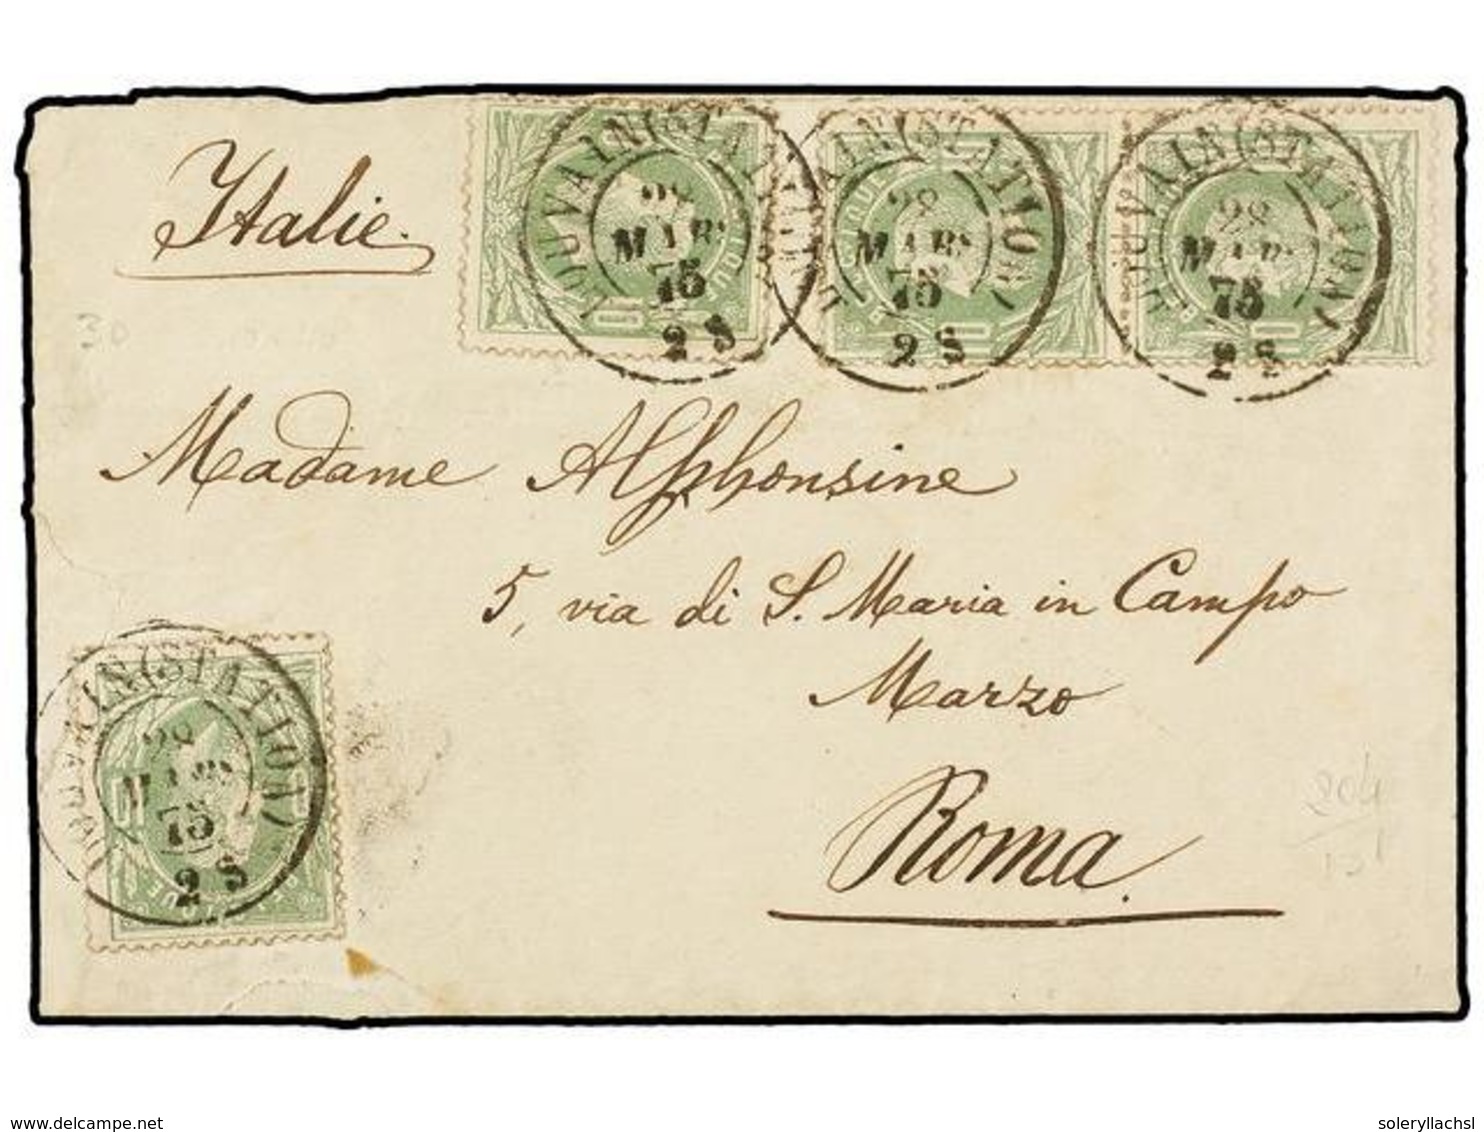 Italie.
LOUVAIN (STATION)
28
MARS
75
2 S
LOUVAIN (STATION)
28
MARS
75
2 S
LOUVAIN (STATION)
28
MARS
75
2 S
30
Madame Alphonsine
5, via di S. Maria in Campo
Marzo
Roma.
LOUVAIN (STATION)
28
MARS
75
2 S
www.delcampe.net
soleryllachsl